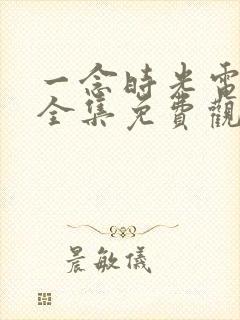 一念時光電
全集免費觀
晨敏儀